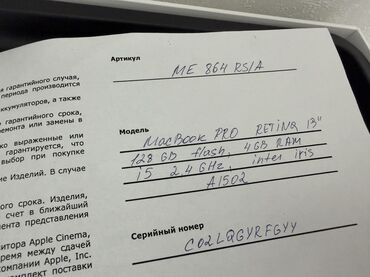 Артикул
ME 864 RS/A
Модель
MacBook PRO RETINA 13"
128 GB flash, 4GB RAM
i5 2,4 GHz, inter iris
A1502
Серийный номер
C02LQGYRFGYY
гарантийного случая,
периода производится
ккумуляторов, а также
гарантийного срока,
ремонта или замены в
ко выраженные или
гарантируется, что
выбор при покупке
ие Изделий. В случае
ного срока. Изделия,
счет в ближайший
мента представления
нитора Apple Cinema,
время между сдачей
компании Apple, Inc.
комплект поставки